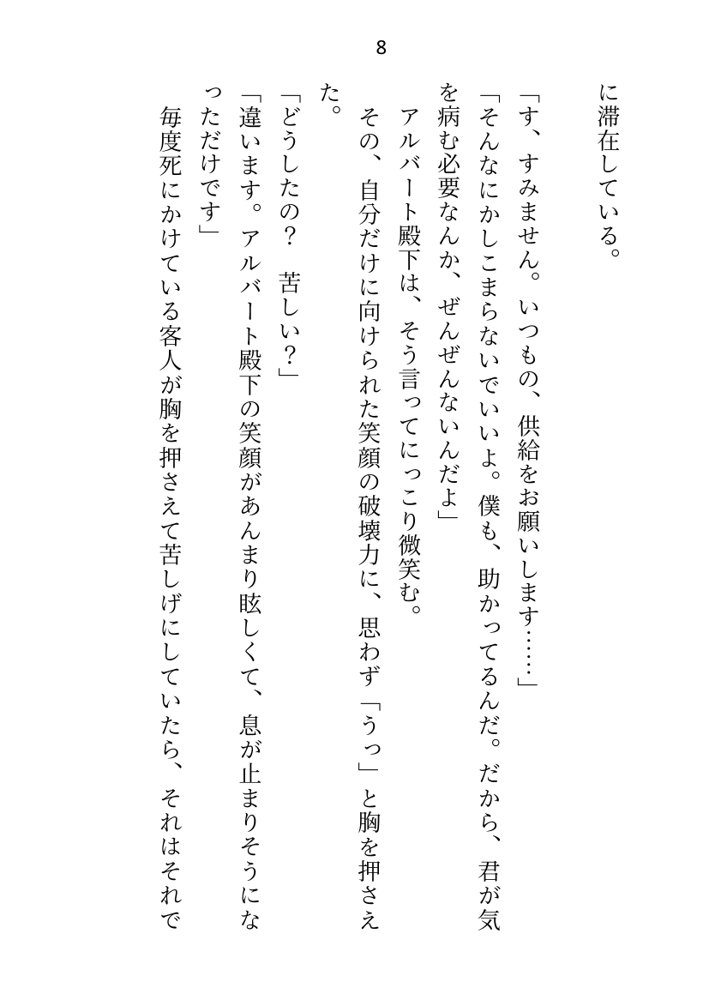 8
に滞在している。
「す、すみません。いつもの、供給をお願いします……」
「そんなにかしこまらないでいいよ。僕も、助かってるんだ。だから、君が気
を病む必要なんか、ぜんぜんないんだよ」
　アルバート殿下は、そう言ってにっこり微笑む。
　その、自分だけに向けられた笑顔の破壊力に、思わず「うっ」と胸を押さえ
た。
「どうしたの？　苦しい？」
「違います。アルバート殿下の笑顔があんまり眩しくて、息が止まりそうにな
っただけです」
　毎度死にかけている客人が胸を押さえて苦しげにしていたら、それはそれで